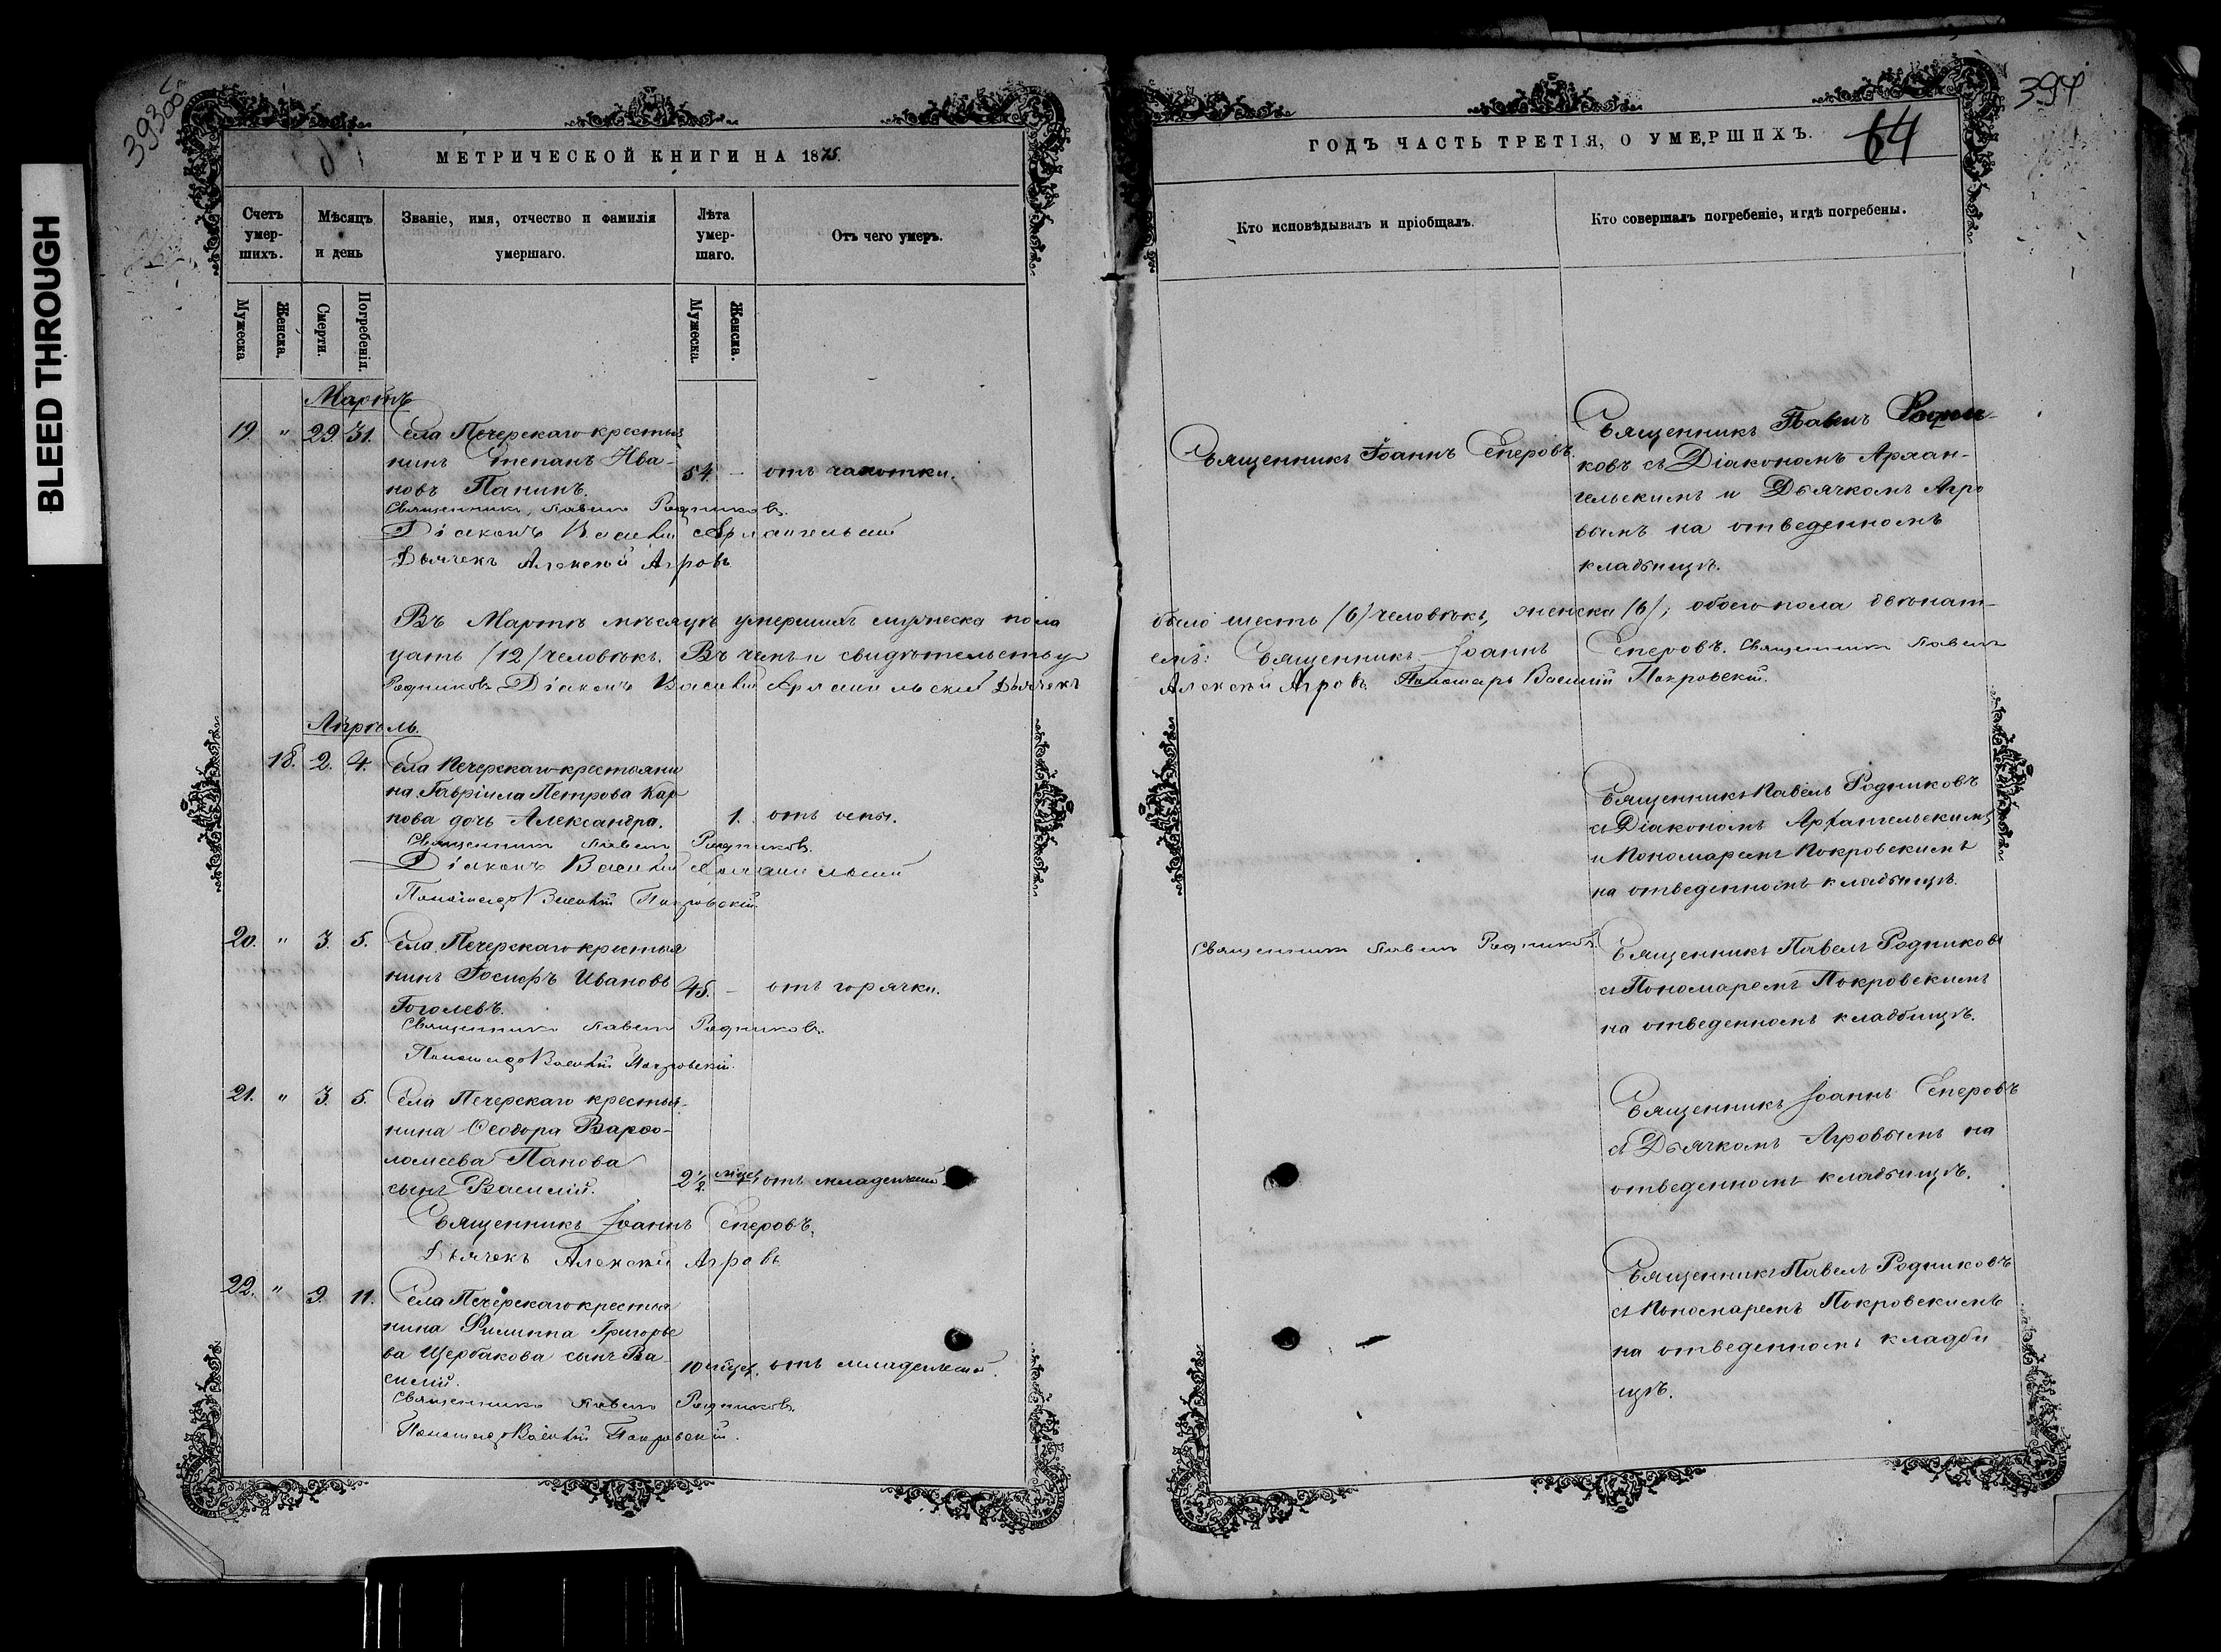 BLEED THROUGH
393об
МЕТРИЧЕСКОЙ КНИГИ НА 1875.
Счетъ умер-шихъ.
Мѣсяцъ и день
Званіе, имя, отчество и фамилія умершаго.
Лѣта умер-шаго.
Отъ чего умеръ.
Мужеска
Женска.
Смерти.
Погребенія.
Мужеска.
Женска.
Мартъ
19. " 29 31. Села Печерскаго крестья
нинъ Степанъ Ива-
новъ Панинъ. 54. - отъ чахотки.
Священникъ Павелъ Родниковъ.
Діаконъ Василій Архангельскій
Дьячекъ Алексѣй Агровъ
Въ Мартѣ мѣсяцѣ умершихъ мужеска пола
цать /12/ человѣкъ. Въ чемъ и свидѣтельству
Родниковъ Діаконъ Василій Архангельскій Дьячекъ
Апрѣль.
18. 2. 4. Села Печерскаго крестьяни
на Гавріила Петрова Кар
пова дочь Александра. 1. отъ оспы.
Священникъ Павелъ Родниковъ.
Діаконъ Василій Архангельскій
Пономарь Василій Покровскій
20. " 3. 5. Села Печерскаго крестья
нинъ Іосифъ Ивановъ
Гоголевъ. 45. - отъ горячки.
Священникъ Павелъ Родниковъ.
Пономарь Василій Покровскій.
21. " 3. 5. Села Печерскаго крестья-
нина Ѳеодора Варѳо-
ломеева Панова
сынъ Василій. 2 1/2 мѣсц. отъ младенческой
Священникъ Іоаннъ Сеперовъ.
Дьячекъ Алексѣй Агровъ
22. " 9. 11. Села Печерскаго крестья
нина Филиппа Григорье
ва Щербакова сынъ Ва-
силій. 10 мѣсц. отъ младенческой.
Священникъ Павелъ Родниковъ.
Пономарь Василій Покровскій.
394
ГОДЪ ЧАСТЬ ТРЕТІЯ, О УМЕРШИХЪ.
64
Кто исповѣдывалъ и пріобщалъ.
Кто совершалъ погребеніе, и гдѣ погребены.
Священникъ Іоаннъ Сеперовъ.
Священникъ Павелъ Родни-
ковъ съ Діакономъ Архан-
гельскимъ и Дьячкомъ Агро
вымъ на отведенномъ
кладбищѣ.
было шесть /6/ человѣкъ, женска /6/; обоего пола двѣнат-
емъ: Священникъ Іоаннъ Сеперовъ. Священникъ Павелъ
Алексѣй Агровъ. Пономарь Василій Покровскій.
Священникъ Павелъ Родниковъ
съ Діакономъ Архангельскимъ
и Пономаремъ Покровскимъ
на отведенномъ кладбищѣ.
Священникъ Павелъ Родниковъ.
Священникъ Павелъ Родниковъ
съ Пономаремъ Покровскимъ
на отведенномъ кладбищѣ.
Священникъ Іоаннъ Сеперовъ
съ Дьячкомъ Агровымъ на
отведенномъ кладбищѣ.
Священникъ Павелъ Родниковъ
съ Пономаремъ Покровскимъ
на отведенномъ кладби
щѣ.